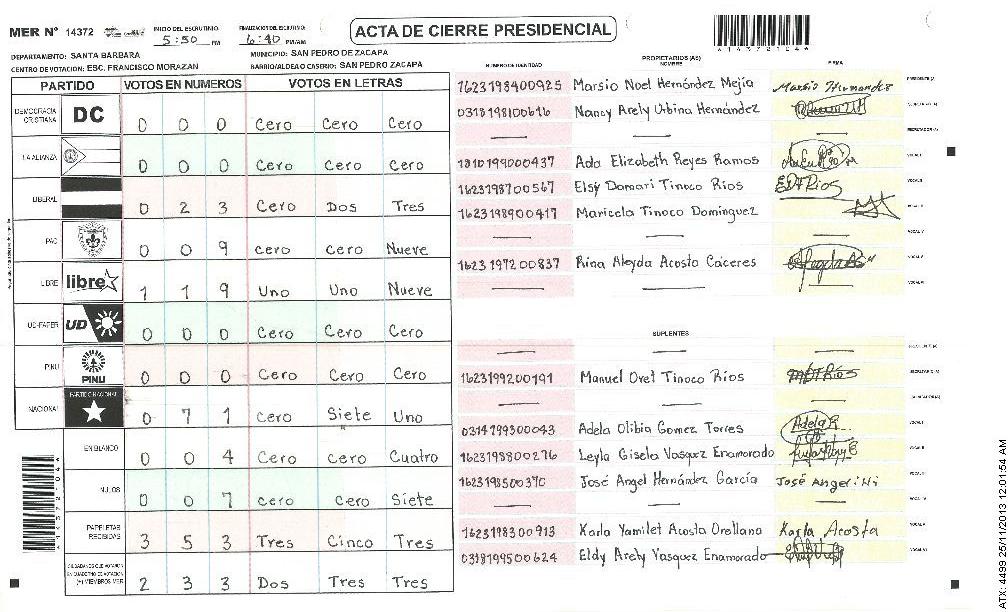 MER N° 14372 INICIO DEL ESCRUTINIO: 5:50 PM FINALIZACION DEL ESCRUTINIO: 6:40 PM/AM
ACTA DE CIERRE PRESIDENCIAL
A143721044
DEPARTAMENTO: SANTA BARBARA MUNICIPIO: SAN PEDRO DE ZACAPA
CENTRO DE VOTACION: ESC. FRANCISCO MORAZAN BARRIO/ALDEA O CASERIO: SAN PEDRO ZACAPA
PARTIDO VOTOS EN NUMEROS VOTOS EN LETRAS
DEMOCRACIA CRISTIANA DC 0 0 0 Cero Cero Cero
LA ALIANZA 0 0 0 Cero Cero Cero
LIBERAL 0 2 3 Cero Dos Tres
PAC 0 0 9 cero Cero Nueve
LIBRE libre 1 1 9 Uno Uno Nueve
UD-FAPER UD 0 0 0 Cero Cero Cero
PINU PINU 0 0 0 Cero Cero Cero
NACIONAL PARTIDO NACIONAL 0 7 1 Cero Siete Uno
EN BLANCO 0 0 4 Cero Cero Cuatro
NULOS 0 0 7 cero cero Siete
PAPELETAS RECIBIDAS 3 5 3 Tres Cinco Tres
CIUDADANOS QUE VOTARON EN CUADERNO DE VOTACION (+) MIEMBROS MER 2 3 3 Dos Tres Tres
PROPIETARIOS (AS)
NUMERO DE IDENTIDAD NOMBRE FIRMA
1623198400925 Marsio Noel Hernández Mejía Marsio Hernandez
0318198100616 Nancy Arely Urbina Hernández
1810199000437 Ada Elizabeth Reyes Ramos
1623198700567 Elsy Damari Tinoco Rios EDTRios
1623198900417 Maricela Tinoco Dominguez
1623197200837 Rina Aleyda Acosta Cáceres
SUPLENTES
1623199200191 Manuel Ovet Tinoco Ríos MOTRíos
0314199300043 Adela Olibia Gomez Torres Adela
1623198800276 Leyla Gisela Vasquez Enamorado
1623198500370 José Angel Hernández García José Angel
1623198300913 Karla Yamilet Acosta Orellana Karla Acosta
0318199500624 Eldy Arely Vasquez Enamorado
ATX: 4499 25/11/2013 12:01:54 AM